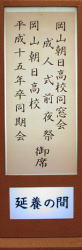 岡山朝日高校同窓会
成人式前夜祭 御席
岡山朝日高校
平成十五年卒同期会
延養の間